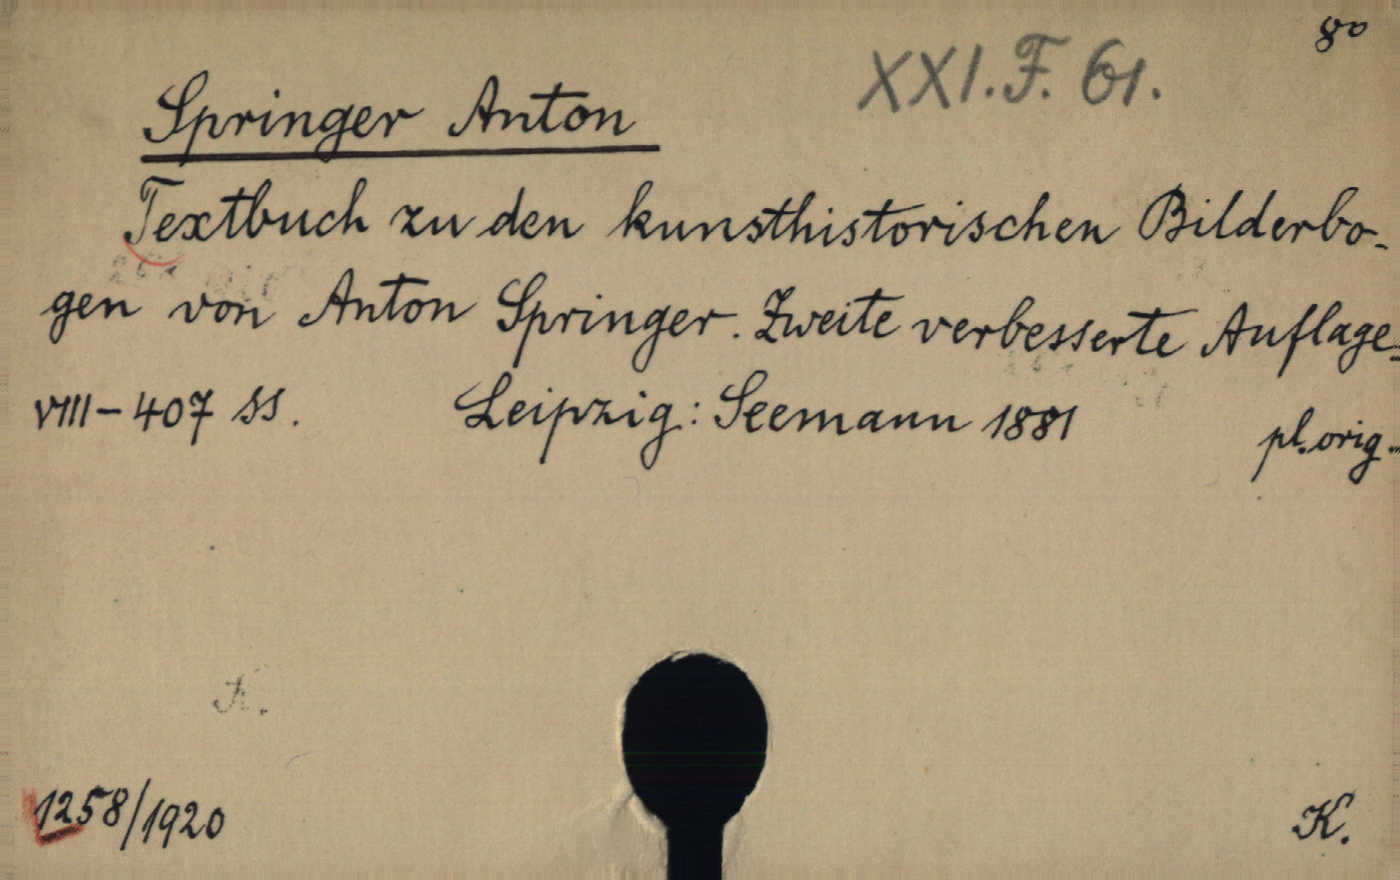 8°
XXI. F. 61.
Springer Anton
Textbuch zu den kunsthistorischen Bilderbo-
gen von Anton Springer. Zweite verbesserte Auflage
VIII – 407 SS. Leipzig: Seemann 1881
pl. orig.
K.
1258/1920
K.